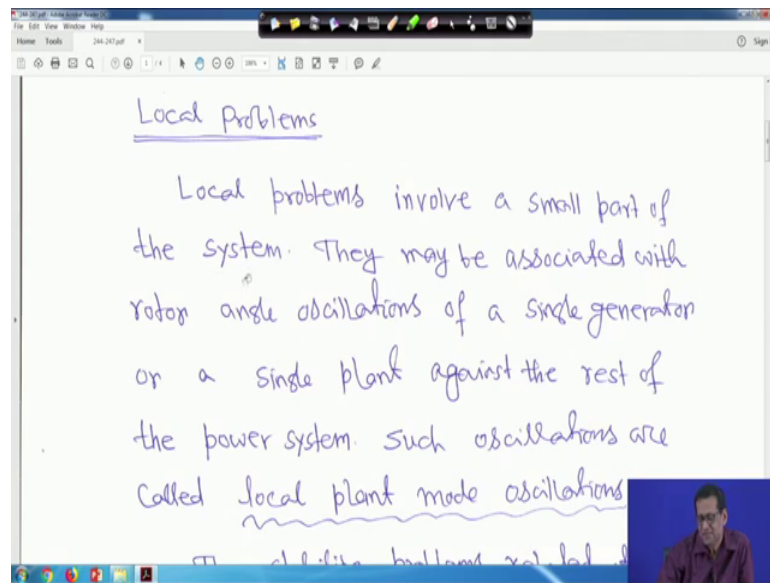 244-247.pdf - Adobe Acrobat Reader DC
File Edit View Window Help
Home Tools 244-247.pdf x
Sign
1 / 4
Local Problems
Local problems involve a small part of
the system. They may be associated with
rotor angle oscillations of a single generator
or a single plant against the rest of
the power system. Such oscillations are
called local plant mode oscillations